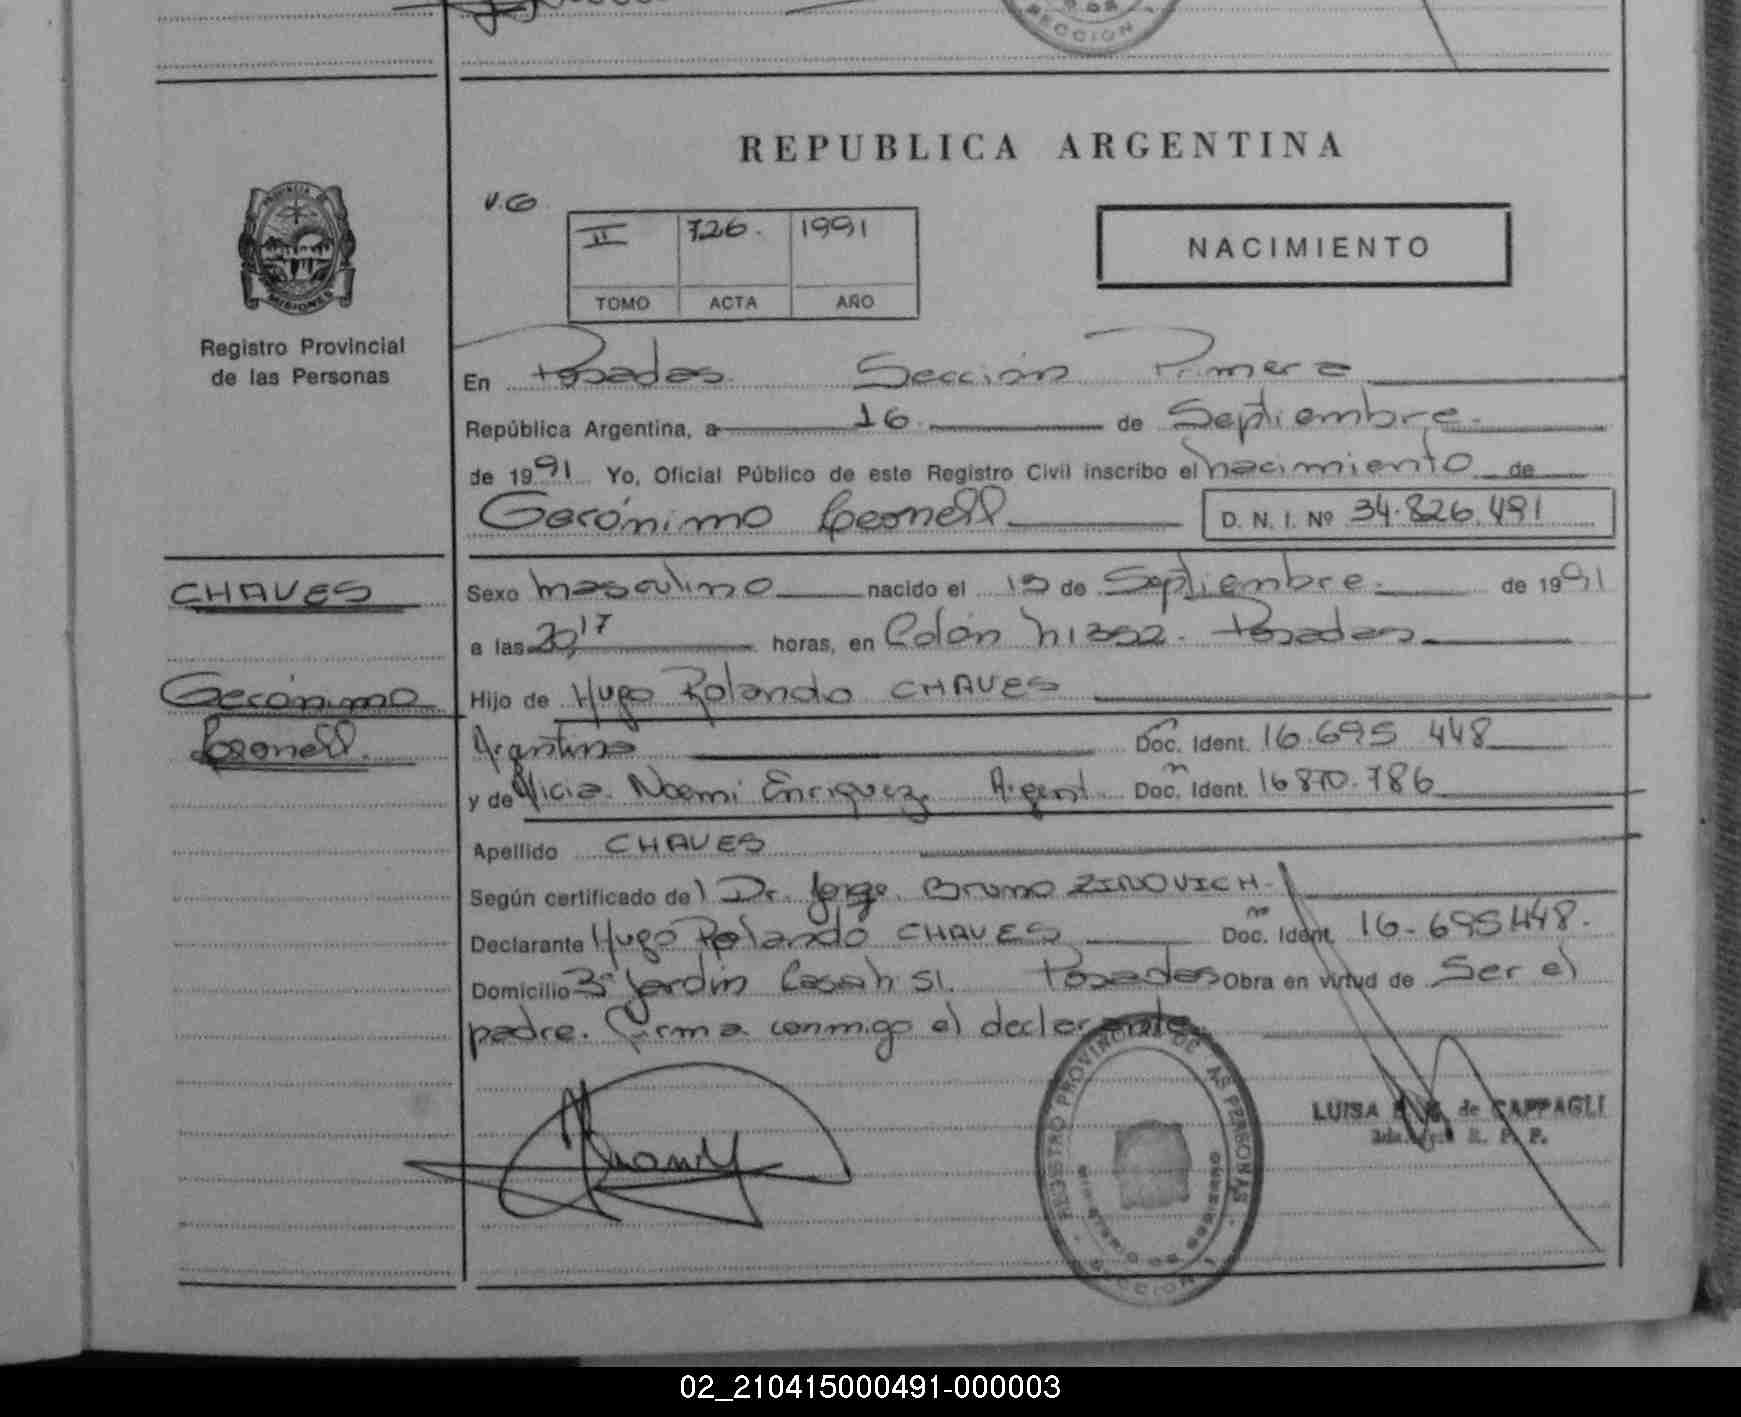 SECCION 1
REPUBLICA ARGENTINA
V.G
II 726. 1991
TOMO ACTA AÑO
NACIMIENTO
PROVINCIA DE
MISIONES
Registro Provincial
de las Personas
En Posadas Sección Primera
República Argentina, a 16 de Septiembre.
de 1991 Yo, Oficial Público de este Registro Civil inscribo el nacimiento de
Gerónimo Leonell D. N. I. Nº 34.826.491
CHAVES
Gerónimo
Leonell.
Sexo masculino nacido el 13 de Septiembre. de 1991
a las 20,17 horas, en Colón n 1352. Posadas
Hijo de Hugo Rolando CHAVES
Argentino Doc. Ident. 16.695 448
y de Alicia Noemi Enriquez Argent. Doc. Ident. 16 870.786
Apellido CHAVES
Según certificado del Dr. Jorge Bruno ZINOVICH
Declarante Hugo Rolando CHAVES Doc. Ident. 16-695448.
Domicilio 3º Jardín Casa n 51. Posadas Obra en virtud de Ser el
padre. Firma conmigo el declarante.
REGISTRO PROVINCIAL DE LAS PERSONAS
MINISTERIO DE GOBIERNO
SECCION 1
LUISA de CAPPAGLI
R. P. P.
02_210415000491-000003